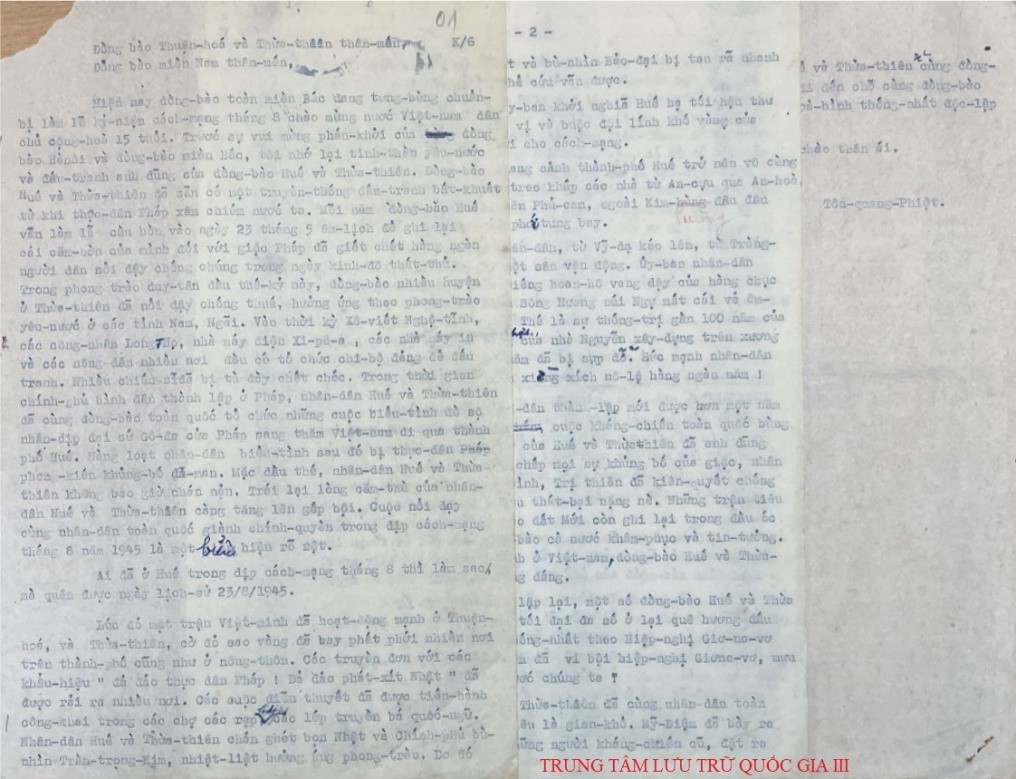 01
Đồng bào Thuận-hoá và Thừa-thiên thân-mến, K/6
Đồng bào miền Nam thân-mến,
Hiện nay đồng-bào toàn miền Bắc đang tưng-bừng chuẩn-
bị làm lễ kỷ-niệm cách-mạng tháng 8 chào mừng nước Việt-nam dân
chủ cộng-hoà 15 tuổi. Trước sự vui mừng phấn-khởi của đồng
bào Hànội và đồng-bào miền Bắc, tôi nhớ lại tinh-thần yêu-nước
và đấu-tranh anh dũng của đồng-bào Huế và Thừa-thiên. Đồng-bào
Huế và Thừa-thiên đã sẵn có một truyền-thống đấu-tranh bất-khuất
từ khi thực-dân Pháp xâm chiếm nước ta. Mỗi năm đồng-bào Huế
vẫn làm lễ cầu hồn vào ngày 23 tháng 5 âm-lịch để ghi lại
cái căm-hờn của mình đối với giặc Pháp đã giết chết hàng ngàn
người dân nổi dậy chống chúng trong ngày kinh-đô thất-thủ.
Trong phong trào duy-tân đầu thế-kỷ này, đồng-bào nhiều huyện
ở Thừa-thiên đã nổi dậy chống thuế, hưởng ứng theo phong-trào
yêu-nước ở các tỉnh Nam, Ngãi. Vào thời kỳ Xô-viết Nghệ-tĩnh,
các công-nhân Long Thọ, nhà máy điện Xi-pê-a , các nhà máy in
và các nông-dân nhiều nơi đều có tổ chức chi-bộ đảng để đấu
tranh. Nhiều chiến-sĩđã bị tù đày chết chóc. Trong thời gian
chính-phủ bình dân thành lập ở Pháp, nhân-dân Huế và Thừa-thiên
đã cùng đồng-bào toàn quốc tổ chức những cuộc biểu-tình đồ sộ
nhân-dịp đại sứ Gô-đa của Pháp sang thăm Việt-nam đi qua thành
phố Huế. Hàng loạt nhân-dân biểu-tình sau đó bị thực-dân Pháp
phong-kiến khủng-bố dã-man. Mặc dầu thế, nhân-dân Huế và Thừa-
thiên không bao giờ chán nản. Trái lại lòng căm-thù của nhân-
dân Huế và Thừa-thiên càng tăng lên gấp bội. Cuộc nổi dậy
cùng nhân-dân toàn quốc giành chính-quyền trong dịp cách-mạng
tháng 8 năm 1945 là một biểu hiện rõ rệt.
Ai đã ở Huế trong dịp cách-mạng tháng 8 thì làm sao
mà quên được ngày lịch-sử 23/8/1945.
Lúc đó mặt trận Việt-minh đã hoạt-động mạnh ở Thuận-
hoá, và Thừa-thiên, cờ đỏ sao vàng đã bay phất phới nhiều nơi
trên thành-phố cũng như ở nông-thôn. Các truyền đơn với các
khẩu-hiệu " đả đảo thực dân Pháp ! Đả đảo phát-xít Nhật " đã
được rải ra nhiều nơi. Các cuộc diễn thuyết đã được tiến-hành
công-khai trong các chợ các rạp các lớp truyền bá quốc-ngữ.
Nhân-dân Huế và Thừa-thiên chán ghét bọn Nhật và Chính-phủ bù-
nhìn Trần-trọng-Kim, nhiệt-liệt hưởng ứng phong-trào. Do đó
- 2 -
t và bù-nhìn Bảo-đại bị tan rã nhanh
hế cứu vãn được.
y-ban khởi nghĩa Huế hạ tối hậu thư
vị và buộc đội lính khố vàng của
i cho cách-mạng.
ang cảnh thành-phố Huế trở nên vô cùng
treo khắp các nhà từ An-cựu qua An-hoà,
ên Phú-cam, ngoài Kim-
đâu đâu
phới tung bay.
ân-dân, từ Vỹ-dạ kéo lên, từ Tràng-
ột sân vận động. Ủy-ban nhân-dân
iếng hoan-hô vang dậy của hàng chục
sông Hương núi Ngự mất cái vẻ âm-
Thế là sự thống-trị gần 100 năm của
của nhà Nguyễn xây-dựng trên xương
ăm đã bị sụp đổ. Sức mạnh nhân-dân
xiềng xích nô-lệ hàng ngàn năm !
-dân thành-lập mới được hơn một năm
cuộc kháng-chiến toàn quốc bùng
của Huế và Thừathiên đã anh dũng
chấp mọi sự khủng bố của giặc, nhân
ình, Trị thiên đã kiên-quyết chống
u thất-bại nặng nề. Những trận tiêu
o đất Mới còn ghi lại trong đầu óc
bào cả nước khâm-phục và tin-tưởng.
h ở Việt-nam, đồng-bào Huế và Thừa-
g đáng.
lập lại, một số đồng-bào Huế và Thừa
tối đại đa số ở lại quê hương đấu
ống-nhất theo Hiệp-nghị Giơ-ne-vơ
m đã vi bội hiệp-nghị Giơne-vơ, mưu
ước chúng ta ?
Thừa-thiên đã cùng nhân-dân toàn
ều là gian-khổ. Mỹ-Diệm đã bày ra
ững người kháng-chiến cũ, đặt ra
ế và Thừa-thiên cũng đồng-
i đến chỗ cùng đồng-bào
à-bình thống-nhất độc-lập
chào thân ái.
Tôn-quang-Phiệt.
TRUNG TÂM LƯU TRỮ QUỐC GIA III